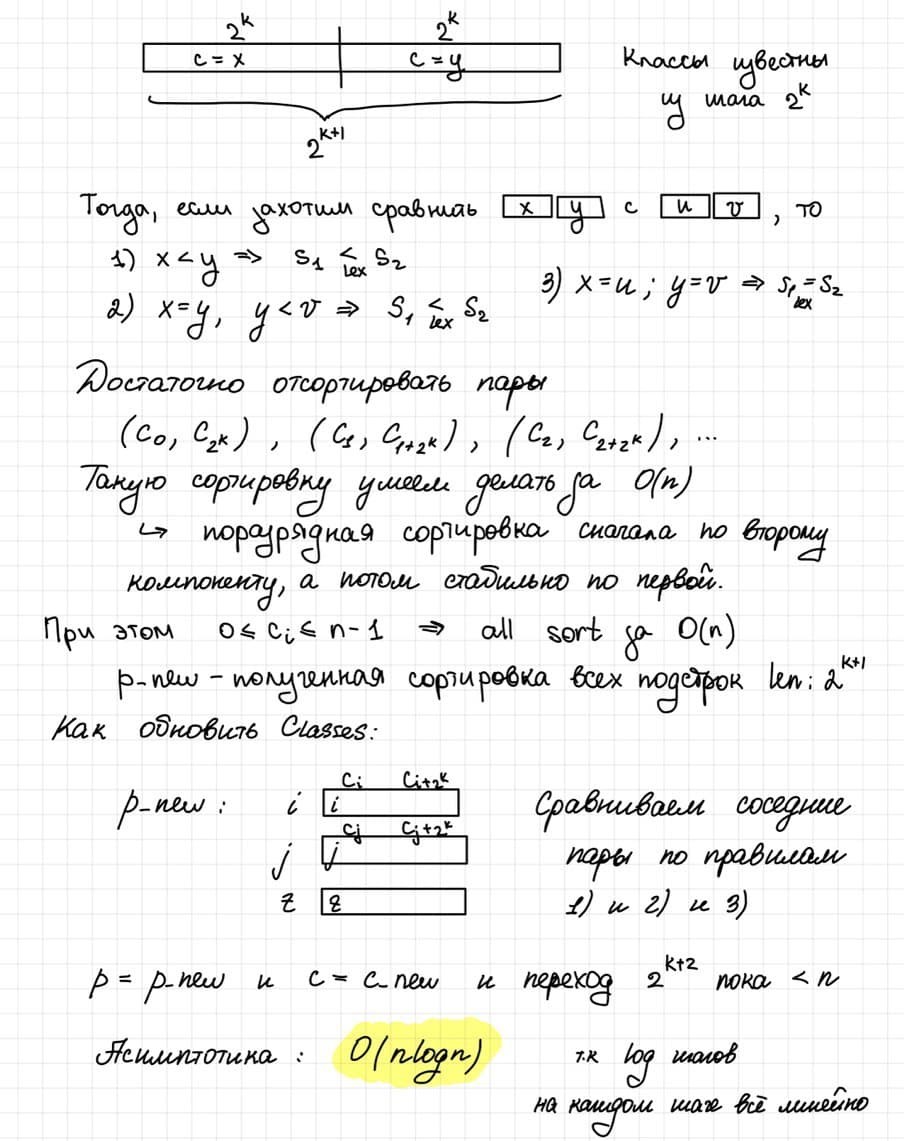 2^k 2^k
c = x c = y
Классы известны
из шага 2^k
2^{k+1}
Тогда, если захотим сравнить x y с u v , то
1) x < y ⇒ S_1 <_{lex} S_2
2) x = y, y < v ⇒ S_1 <_{lex} S_2
3) x = u ; y = v ⇒ S_1 =_{lex} S_2
Достаточно отсортировать пары
(C_0, C_{2^k}) , (C_1, C_{1+2^k}) , (C_2, C_{2+2^k}) , ...
Такую сортировку умеем делать за O(n)
↪ поразрядная сортировка сначала по второму
компоненту, а потом стабильно по первой.
При этом 0 ≤ C_i ≤ n-1 ⇒ all sort за O(n)
p-new - полученная сортировка всех подстрок len: 2^{k+1}
Как обновить Classes:
C_i C_{i+2^k}
p-new : i i
C_j C_{j+2^k}
j j
z z
Сравниваем соседние
пары по правилам
1) и 2) и 3)
p = p-new и c = c-new и переход 2^{k+2} пока < n
Асимптотика : O(nlogn) т.к log шагов
на каждом шаге всё линейно